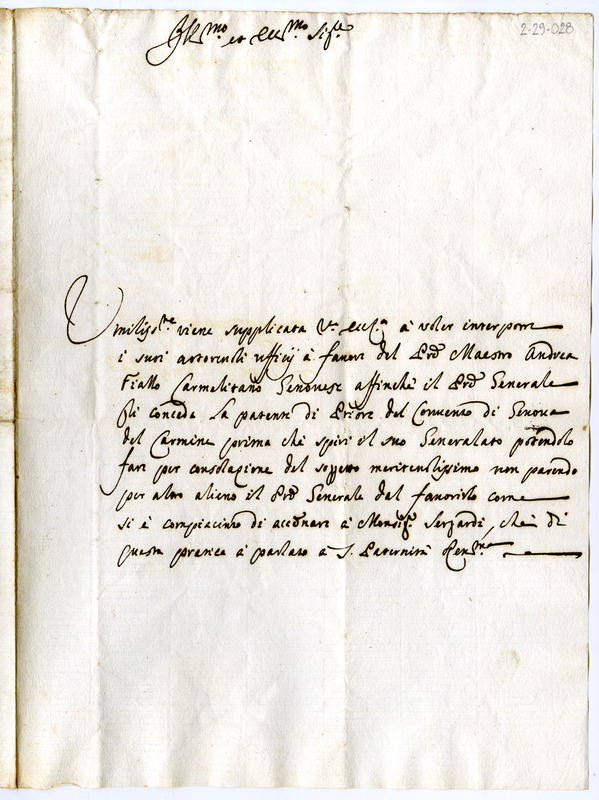 2-29-028
Ill.mo et Ecc.mo Sig.re
Umiliss.te viene supplicata V.ra Ecc.za à voler interporre
i suoi autorevoli ufficij à favore del Prē Maestro Andrea
Fiallo Carmelitano Genovese affinche il Prē Generale
gli conceda la patente di Priore del Convento di Genova
del Carmine prima che spiri il suo Generalato potendolo
fare per consolazione del soggetto meritevolissimo non parendo
per altro alieno il Prē Generale dal favorirlo come
si è compiaciuto di accēnare à Monsig.r Sergardi, che di
questa pratica à parlato à S. Paternità Rev.ma